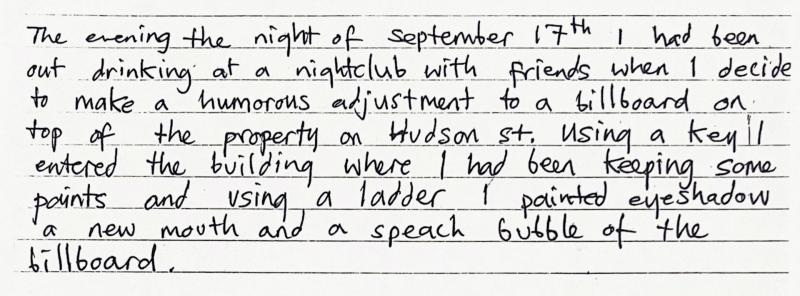 The evening the night of September 17th I had been
out drinking at a nightclub with friends when I decide
to make a humorous adjustment to a billboard on
top of the property on Hudson st. Using a key I
entered the building where I had been keeping some
paints and using a ladder I painted eyeshadow
a new mouth and a speach bubble of the
billboard.